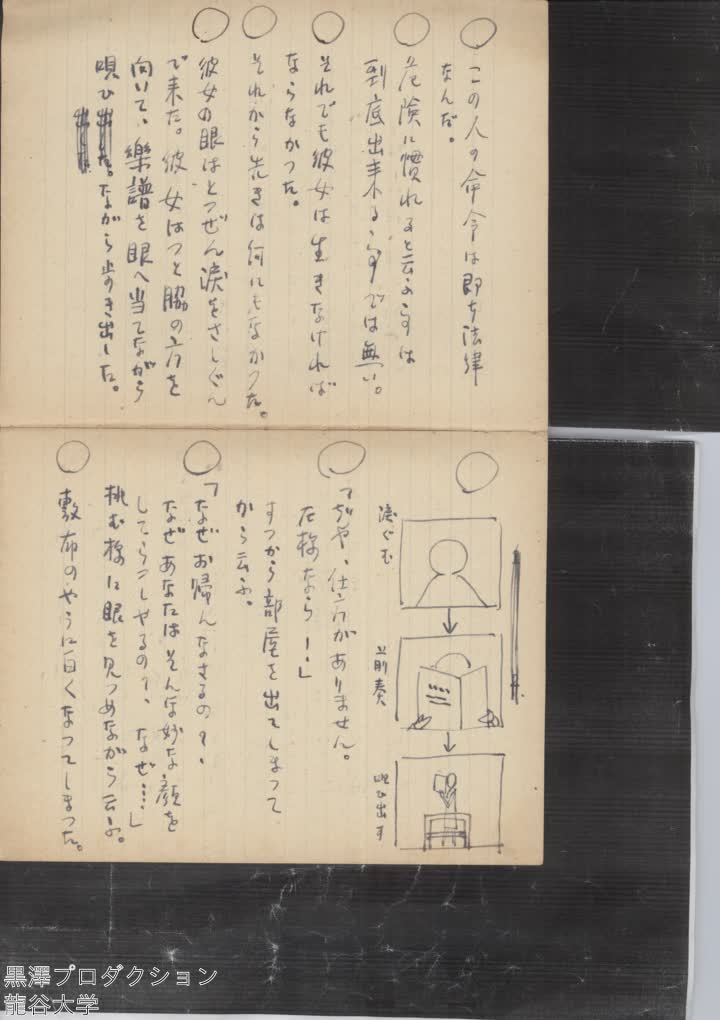 ○ この人の命令は即ち法律
なんだ。
○ 危険に慣れると云ふ事は
到底出来る事では無い。
○ それでも彼女は生きなければ
ならなかつた。
○ それから先きは何にもなかつた。
○ 彼女の眼はとつぜん涙をさしぐん
で来た。彼女はつと脇の方を
向いて、樂譜を眼へ当てながら
唄ひながら歩き出した。
○
涙ぐむ
前奏
唄ひ出す
○ 「ぢや、仕方がありません。
左様なら――」
すつから部屋を出てしまつて
から云ふ。
○ 「なぜお帰んなさるの?、
なぜあなたはそんな妙な顔を
してらつしやるの?、なぜ……」
挑む様に眼を見つめながら云ふ。
○ 敷布のやうに白くなつてしまつた。
黒澤プロダクション
龍谷大学